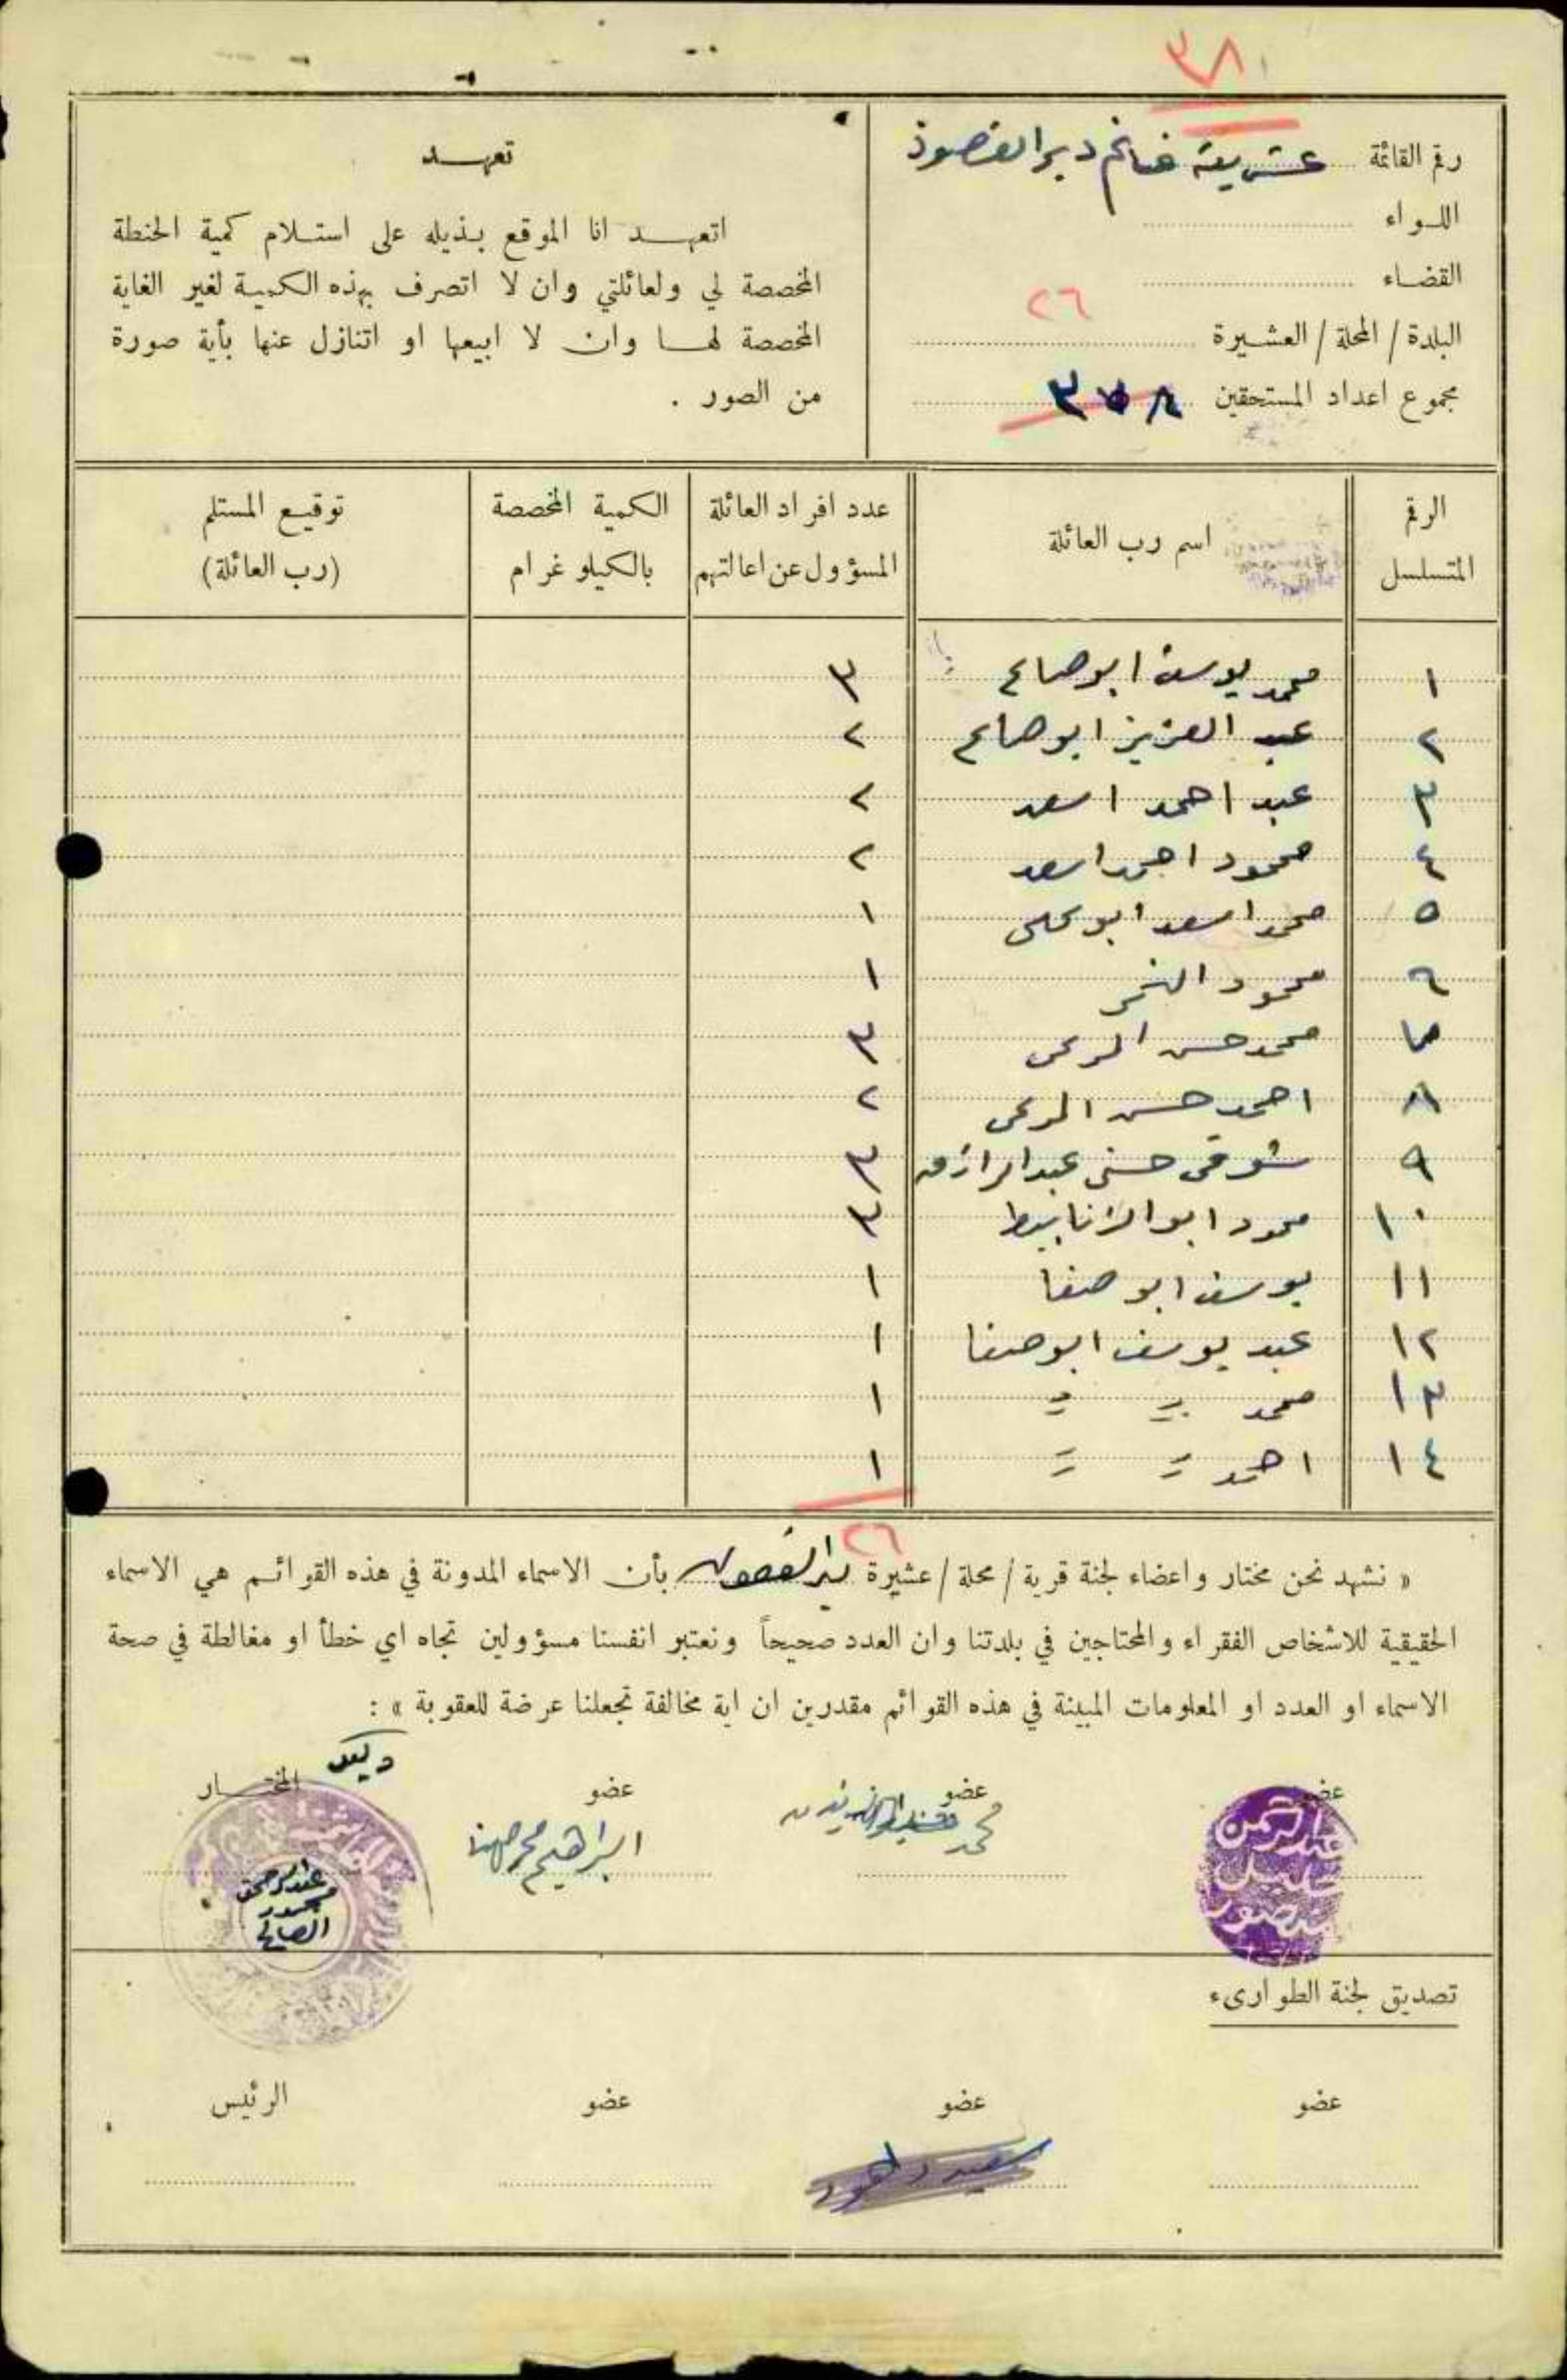 ٣٨
رقم القائمة عشريقة غانم دير الغصون
اللواء
القضاء
٢٦
البلدة / المحلة / العشيرة
مجموع اعداد المستحقين
تعهد
اتعهد انا الموقع بذيله على استلام كمية الحنطة
المخصصة لي ولعائلتي وان لا اتصرف بهذه الكمية لغير الغاية
المخصصة لها وان لا ابيعها او اتنازل عنها بأية صورة
من الصور .
الرقم المتسلسل
اسم رب العائلة
عدد افراد العائلة المسؤول عن اعالتهم
الكمية المخصصة بالكيلو غرام
توقيع المستلم (رب العائلة)
١ محمد يوسف ابو صالح ٣
٢ عبد العزيز ابو صالح ٢
٣ عبد احمد اسعد ٢
٤ محمود احمد اسعد ٢
٥ محمد اسعد ابو علي ١
٦ محمود النمر ١
٧ محمد حسن المرعي ٣
٨ احمد حسن المرعي ٢
٩ شوقي حسني عبد الرازق ٣
١٠ محمود ابو الزنابيط ٣
١١ يوسف ابو صفا ١
١٢ عبد يوسف ابو صفا ١
١٣ محمد = = ١
١٤ احمد = = ١
٢٦
« نشهد نحن مختار واعضاء لجنة قرية / محلة / عشيرة دير الغصون بأن الاسماء المدونة في هذه القوائم هي الاسماء
الحقيقية للاشخاص الفقراء والمحتاجين في بلدتنا وان العدد صحيحاً ونعتبر انفسنا مسؤولين تجاه اي خطأ او مغالطة في صحة
الاسماء او العدد او المعلومات المبينة في هذه القوائم مقدرين ان اية مخالفة تجعلنا عرضة للعقوبة » :
عضو عضو عضو المختار
عبد الرحمن خليل منصور
محمد
ابراهيم محمد مهنا
عبد الرحمن محمود الصالح
تصديق لجنة الطوارىء
عضو عضو عضو الرئيس